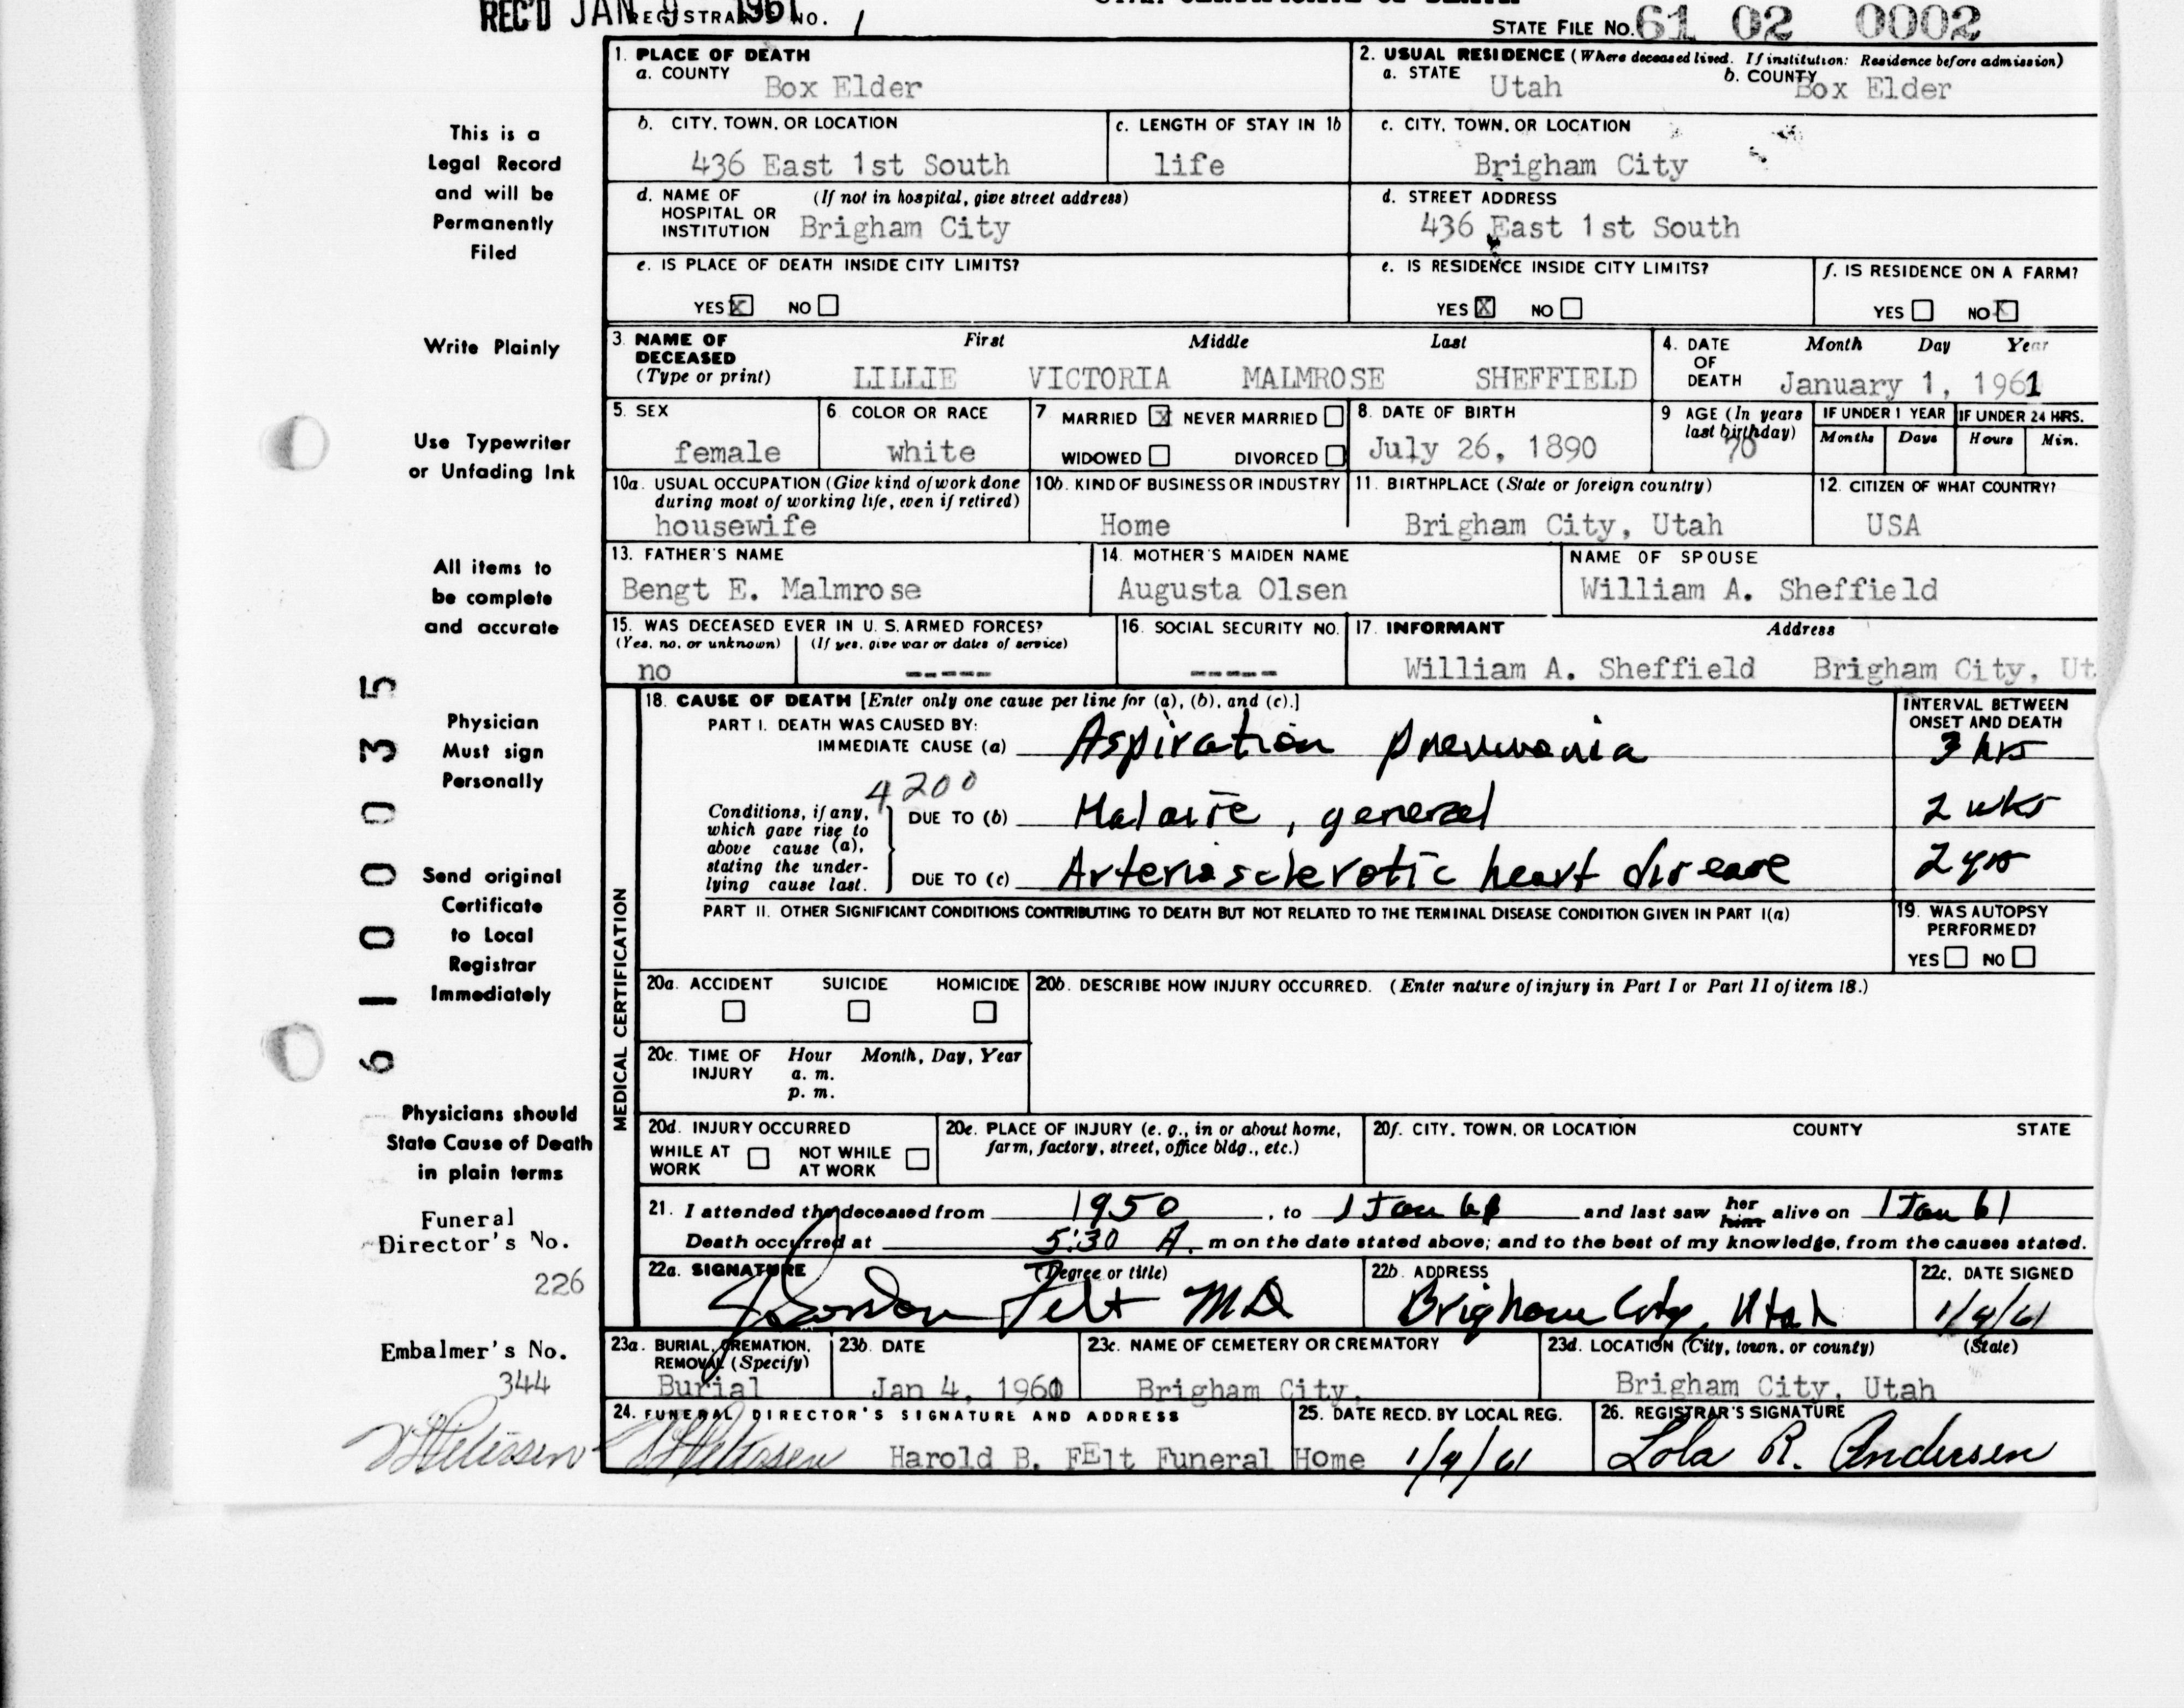 REC'D JAN 9 1961
REGISTRAR'S NO. 1
STATE FILE NO. 61 02 0002
1. PLACE OF DEATH
a. COUNTY Box Elder
2. USUAL RESIDENCE (Where deceased lived. If institution: Residence before admission)
a. STATE Utah b. COUNTY Box Elder
b. CITY, TOWN, OR LOCATION 436 East 1st South
c. LENGTH OF STAY IN 1b life
c. CITY, TOWN, OR LOCATION Brigham City
d. NAME OF HOSPITAL OR INSTITUTION (If not in hospital, give street address) Brigham City
d. STREET ADDRESS 436 East 1st South
e. IS PLACE OF DEATH INSIDE CITY LIMITS?
YES X NO
e. IS RESIDENCE INSIDE CITY LIMITS?
YES X NO
f. IS RESIDENCE ON A FARM?
YES NO X
3. NAME OF DECEASED (Type or print) First Middle Last
LILLIE VICTORIA MALMROSE SHEFFIELD
4. DATE OF DEATH Month Day Year
January 1, 1961
5. SEX female
6. COLOR OR RACE white
7 MARRIED X NEVER MARRIED
WIDOWED DIVORCED
8. DATE OF BIRTH July 26, 1890
9 AGE (In years last birthday) 70
IF UNDER 1 YEAR Months Days
IF UNDER 24 HRS. Hours Min.
10a. USUAL OCCUPATION (Give kind of work done during most of working life, even if retired)
housewife
10b. KIND OF BUSINESS OR INDUSTRY Home
11. BIRTHPLACE (State or foreign country) Brigham City, Utah
12. CITIZEN OF WHAT COUNTRY? USA
13. FATHER'S NAME Bengt E. Malmrose
14. MOTHER'S MAIDEN NAME Augusta Olsen
NAME OF SPOUSE William A. Sheffield
15. WAS DECEASED EVER IN U. S. ARMED FORCES?
(Yes, no, or unknown) no (If yes, give war or dates of service) -----
16. SOCIAL SECURITY NO. -----
17. INFORMANT Address
William A. Sheffield Brigham City, Ut
MEDICAL CERTIFICATION
18. CAUSE OF DEATH [Enter only one cause per line for (a), (b), and (c).]
INTERVAL BETWEEN ONSET AND DEATH
PART I. DEATH WAS CAUSED BY:
IMMEDIATE CAUSE (a) Aspiration pneumonia 3 hrs
4200
Conditions, if any, which gave rise to above cause (a), stating the underlying cause last.
DUE TO (b) Malaise, general 2 wks
DUE TO (c) Arteriosclerotic heart disease 2 yrs
PART II. OTHER SIGNIFICANT CONDITIONS CONTRIBUTING TO DEATH BUT NOT RELATED TO THE TERMINAL DISEASE CONDITION GIVEN IN PART I(a)
19. WAS AUTOPSY PERFORMED?
YES NO
20a. ACCIDENT SUICIDE HOMICIDE
20b. DESCRIBE HOW INJURY OCCURRED. (Enter nature of injury in Part I or Part II of item 18.)
20c. TIME OF INJURY Hour Month, Day, Year
a. m.
p. m.
20d. INJURY OCCURRED
WHILE AT WORK NOT WHILE AT WORK
20e. PLACE OF INJURY (e. g., in or about home, farm, factory, street, office bldg., etc.)
20f. CITY, TOWN, OR LOCATION COUNTY STATE
21. I attended the deceased from 1950, to 1 Jan 61 and last saw her him alive on 1 Jan 61
Death occurred at 5:30 A. m on the date stated above; and to the best of my knowledge, from the causes stated.
22a. SIGNATURE (Degree or title)
Felt MD
22b. ADDRESS Brigham City, Utah
22c. DATE SIGNED 1/4/61
23a. BURIAL, CREMATION, REMOVAL (Specify) Burial
23b. DATE Jan 4, 1961
23c. NAME OF CEMETERY OR CREMATORY Brigham City,
23d. LOCATION (City, town, or county) (State)
Brigham City, Utah
24. FUNERAL DIRECTOR'S SIGNATURE AND ADDRESS
Harold B. FElt Funeral Home
25. DATE RECD. BY LOCAL REG. 1/4/61
26. REGISTRAR'S SIGNATURE
Lola R. Andersen
This is a
Legal Record
and will be
Permanently
Filed
Write Plainly
Use Typewriter
or Unfading Ink
All items to
be complete
and accurate
Physician
Must sign
Personally
Send original
Certificate
to Local
Registrar
Immediately
Physicians should
State Cause of Death
in plain terms
Funeral
Director's No.
226
Embalmer's No.
344
61 0 0 0 3 5